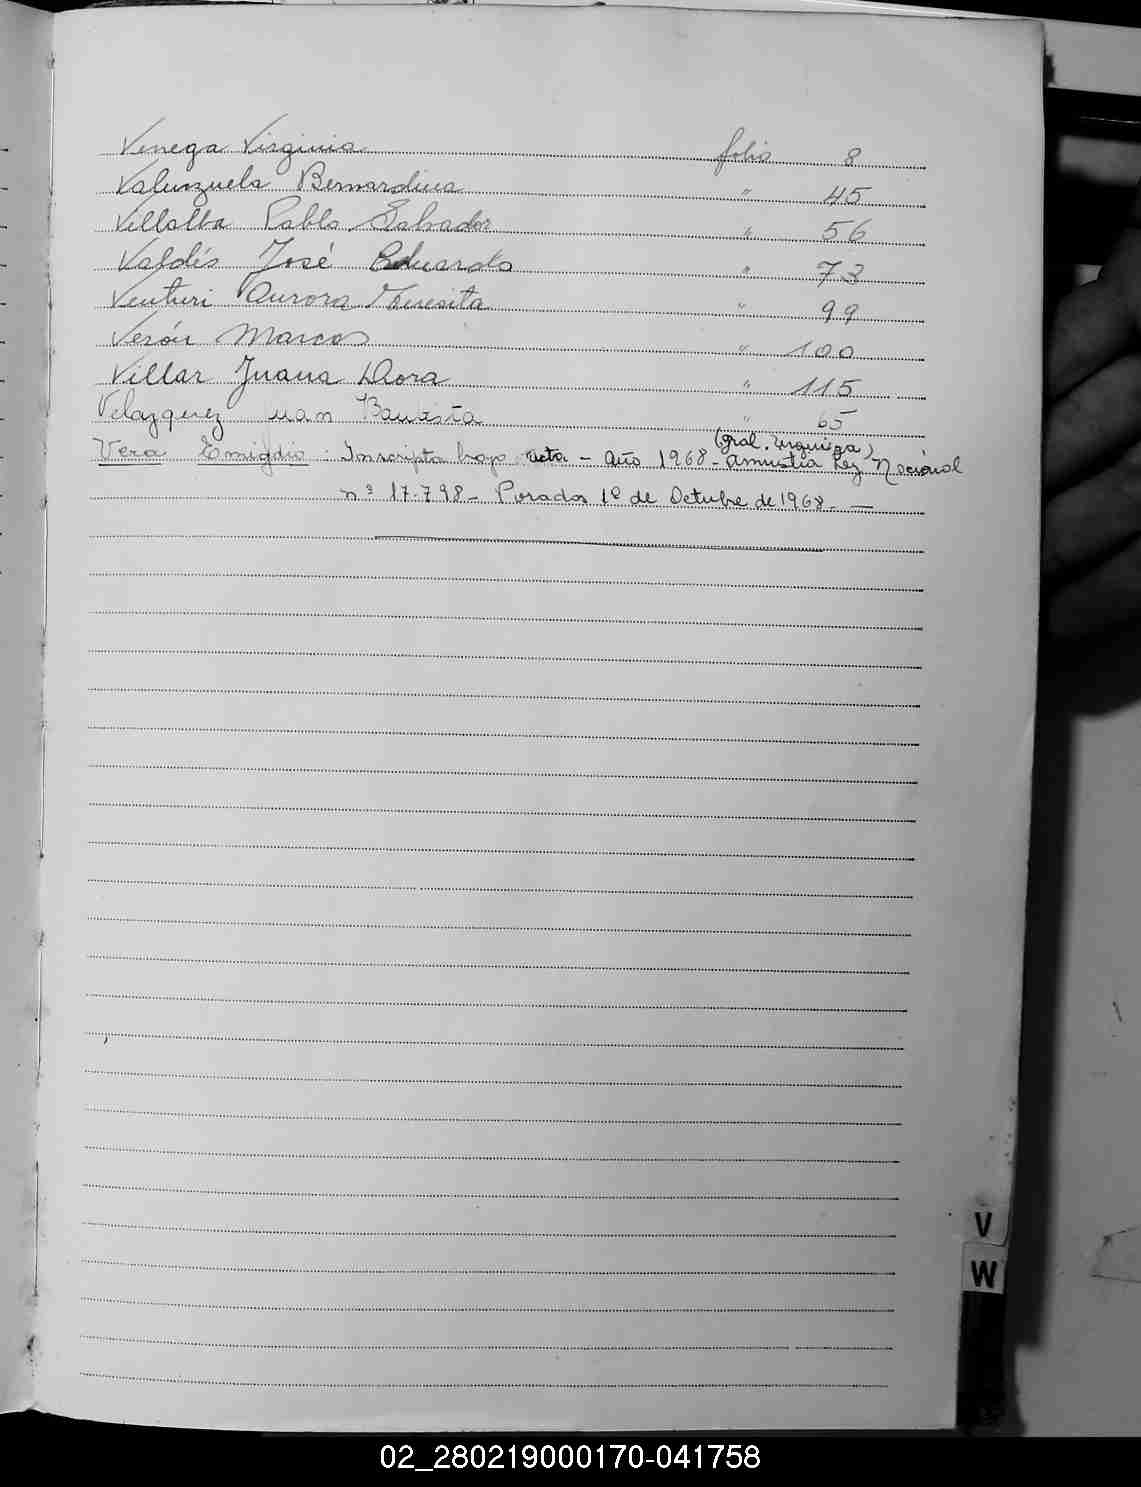 Venega Virginia folio 8
Valenzuela Bernardina " 45
Villalba Pablo Salvador " 56
Valdés José Eduardo " 73
Venturi Aurora Teresita " 99
Verón Marcos " 100
Villar Juana Dora " 115
Velazquez Juan Bautista " 65
(Gral. Urquiza)
Vera Emigdio : Inscripta bajo acta - Año 1968 - Amnistia Ley Nacional
nº 17.798 - Posadas 1º de Octubre de 1968. -
V
W
02_280219000170-041758